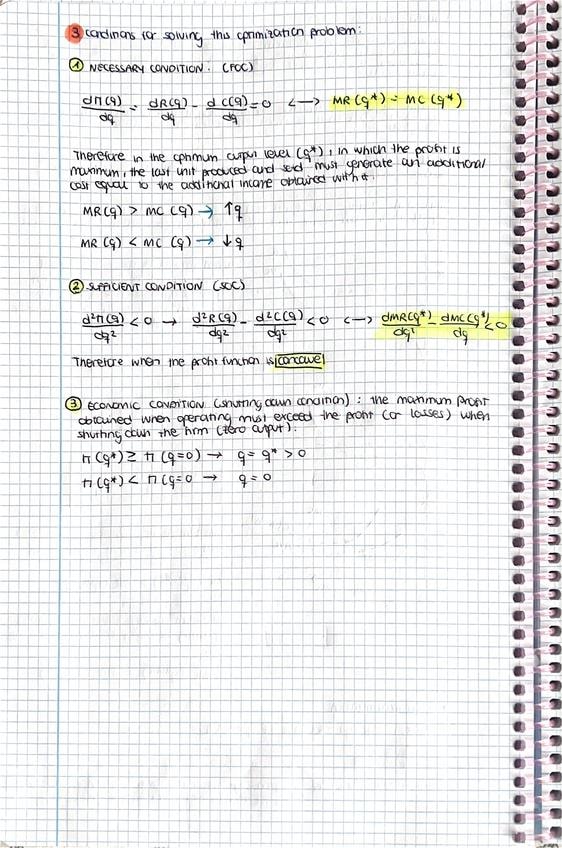 3 conditions for solving this optimization problem:
1 NECESSARY CONDITION: (FOC)
dπ(q)/dq = dR(q)/dq - dC(q)/dq = 0 <—> MR(q*) = MC(q*)
Therefore in the optimum output level (q*), in which the profit is
maximum, the last unit produced and sold must generate an additional
cost equal to the additional income obtained with it.
MR(q) > MC(q) → ↑q
MR(q) < MC(q) → ↓q
2 SUFFICIENT CONDITION (SOC)
d²π(q)/dq² < 0 → d²R(q)/dq² - d²C(q)/dq² < 0 <—> dMR(q*)/dq² - dMC(q*)/dq < 0
Therefore when the profit function is concave
3 ECONOMIC CONDITION (shutting down condition): the maximum profit
obtained when operating must exceed the profit (or losses) when
shutting down the firm (zero output).
π(q*) ≥ π(q=0) → q = q* > 0
π(q*) < π(q=0 → q = 0